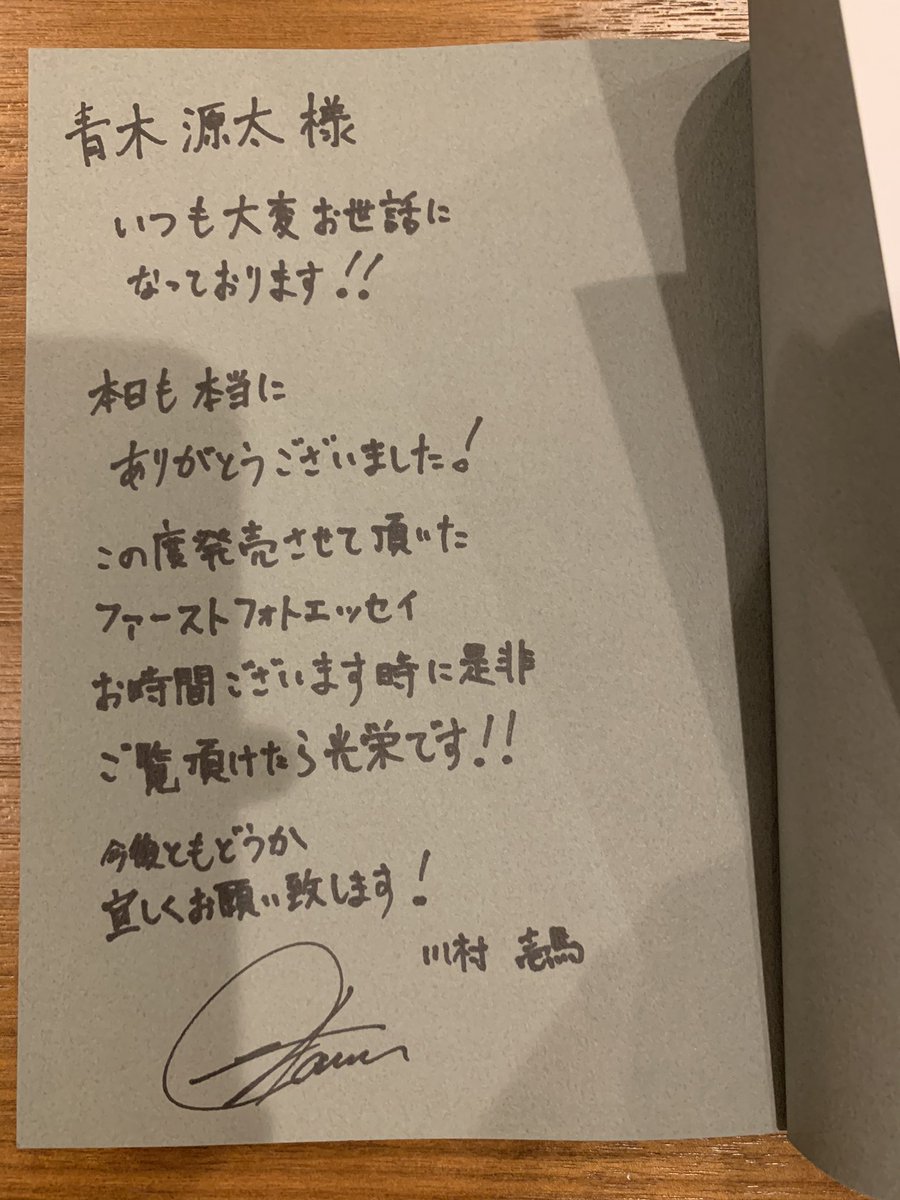 青木 源太 様
いつも大変お世話に
なっております!!
本日も本当に
ありがとうございました!
この度発売させて頂いた
ファーストフォトエッセイ
お時間ございます時に是非
ご覧頂けたら光栄です!!
今後ともどうか
宜しくお願い致します!
川村 壱馬